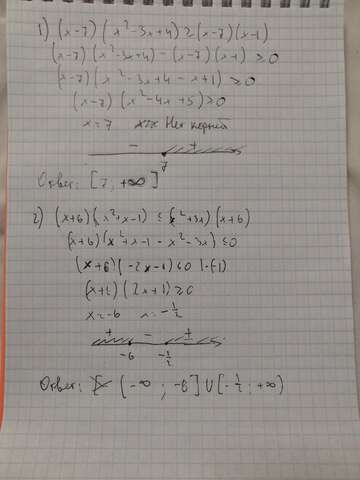 1) (x-7)(x²-3x+4)≥(x-7)(x-1)
(x-7)(x²-3x+4)-(x-7)(x-1)≥0
(x-7)(x²-3x+4-x+1)≥0
(x-7)(x²-4x+5)≥0
x=7 Нет корней
- +
7
Ответ: [7; +∞]
2) (x+6)(x²+x-1)≤(x²+3x)(x+6)
(x+6)(x²+x-1-x²-3x)≤0
(x+6)(-2x-1)≤0 |·(-1)
(x+6)(2x+1)≥0
x=-6 x=-1/2
+ - +
-6 -1/2
Ответ: (-∞; -6]∪[-1/2; +∞)